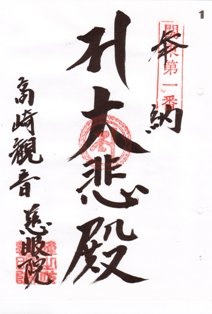 1
奉納
大悲殿
高崎観音
慈眼院
第一番